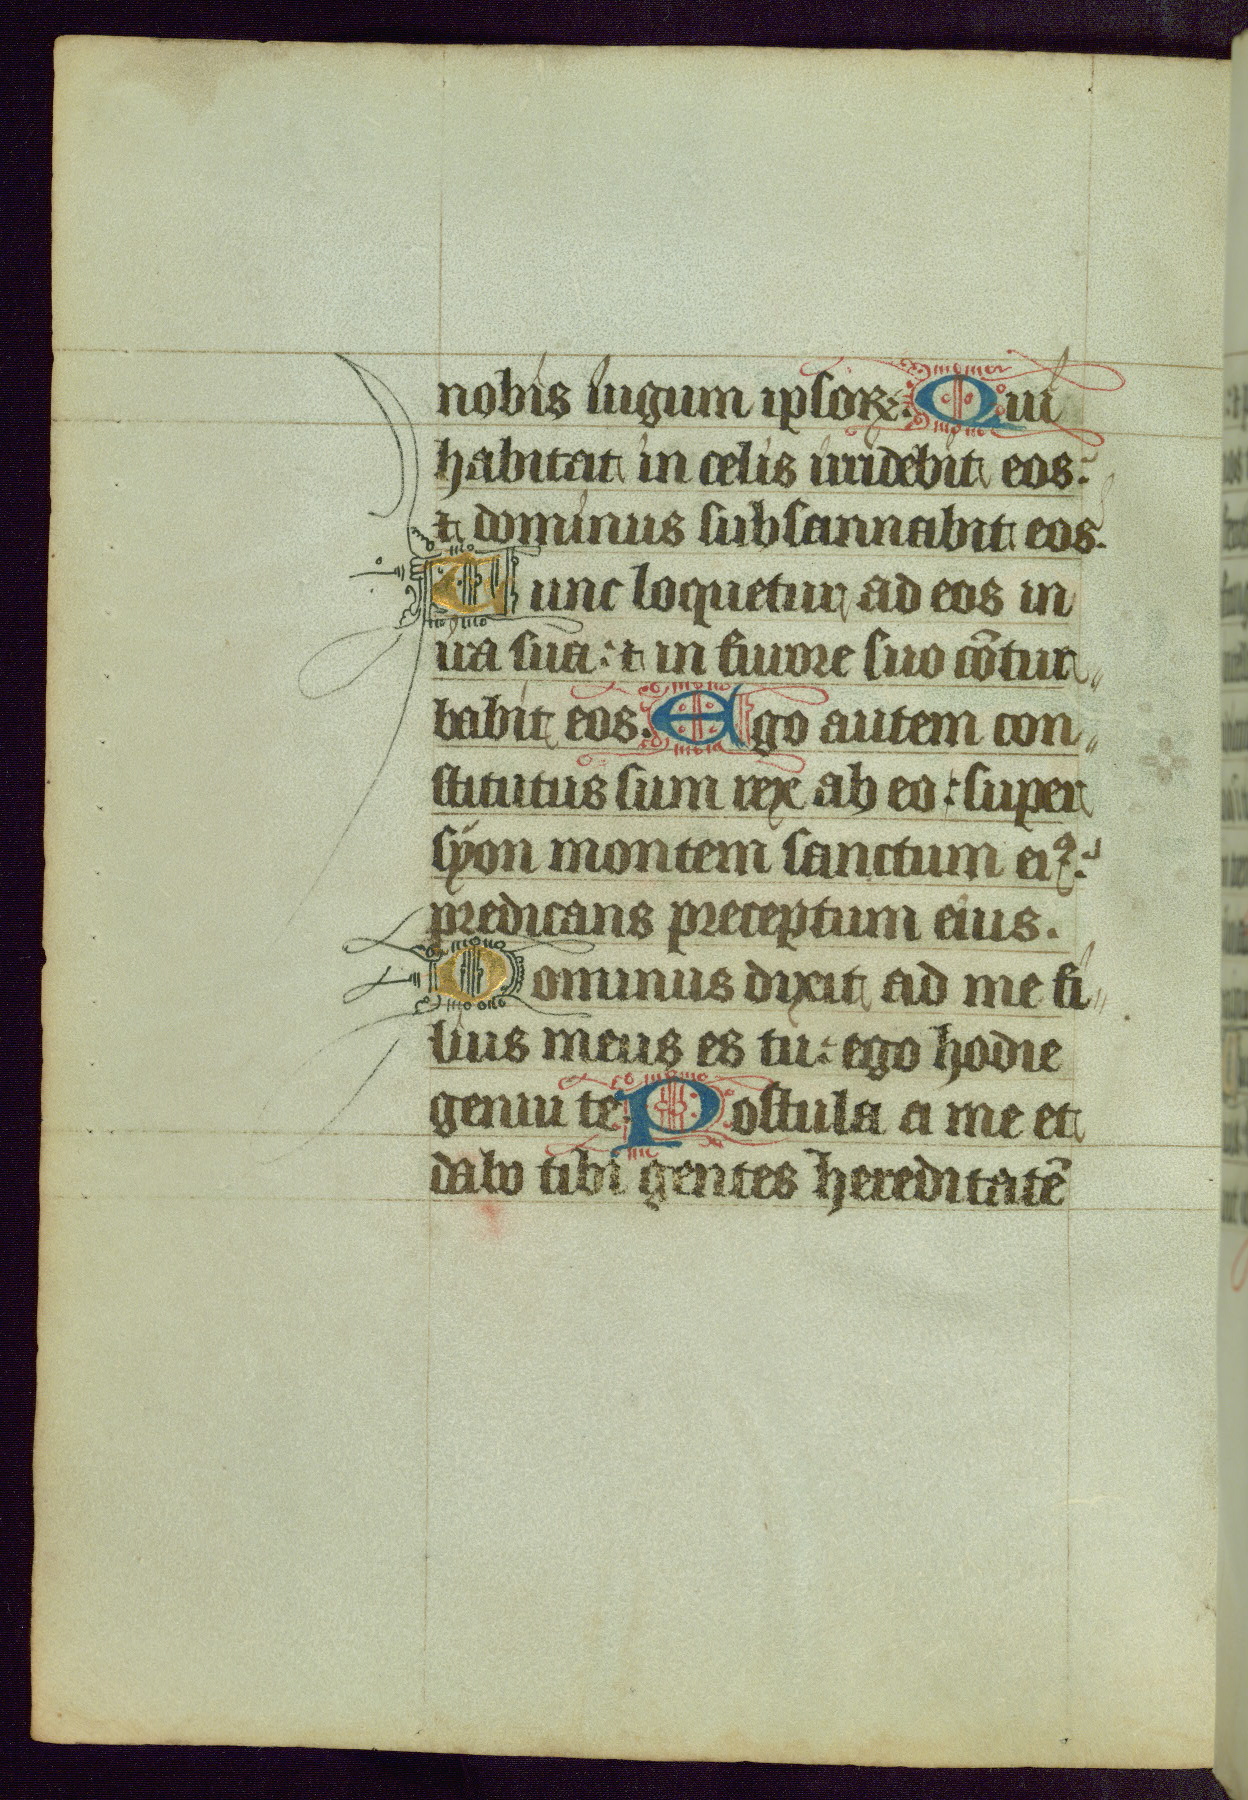 nobis iugum ipsoꝝ. Qui
habitat in celis irridebit eos:
⁊ dominus subsannabit eos.
Tunc loquetur ad eos in
ira sua: ⁊ in furore suo cõtur„
babit eos. Ego autem con„
stitutus sum rex ab eo: super
syon montem sanctum eiꝰ:
predicans preceptum eius.
Dominus dixit ad me fi„
lius meus es tu: ego hodie
genui te. Postula a me et
dabo tibi gentes hereditatẽ